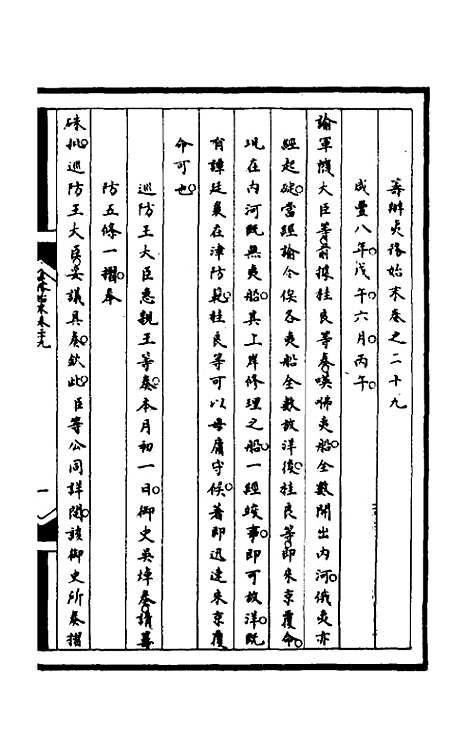 籌辦夷務始末卷之二十九
咸豐八年戊午六月丙午
諭軍機大臣等。前據桂良等奏。嘆咈夷船。全數開出內河。俄夷亦
經起碇。當經諭令俟各夷船全數放洋後。桂良等。即來京覆命。
現在內河既無夷船。其上岸修理之船。一經竣事。即可放洋。既
有譚廷襄在津防範。桂良等可以毋庸守候。著即迅速來京覆
命可也。
巡防王大臣惠親王等奏。本月初一日。御史吳焯奏。請籌
防五條一摺。奉
硃批。巡防王大臣。妥議具奏。欽此。臣等公同詳閱。該御史所奏摺
夷務始末卷二十九
一